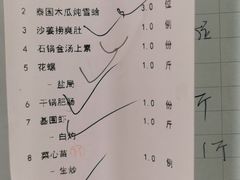 2 泰国木瓜炖雪蛤 3.0 位
3 沙姜捞爽肚 1.0 例
4 石锅金汤上素 1.0 份
5 花螺 1.0 斤
- 盐局
6 干锅肥肠 1.0 份
7 基围虾 1.0 斤
- 白灼
8 菜心苗 1.0 例
- 生炒
斤
1斤